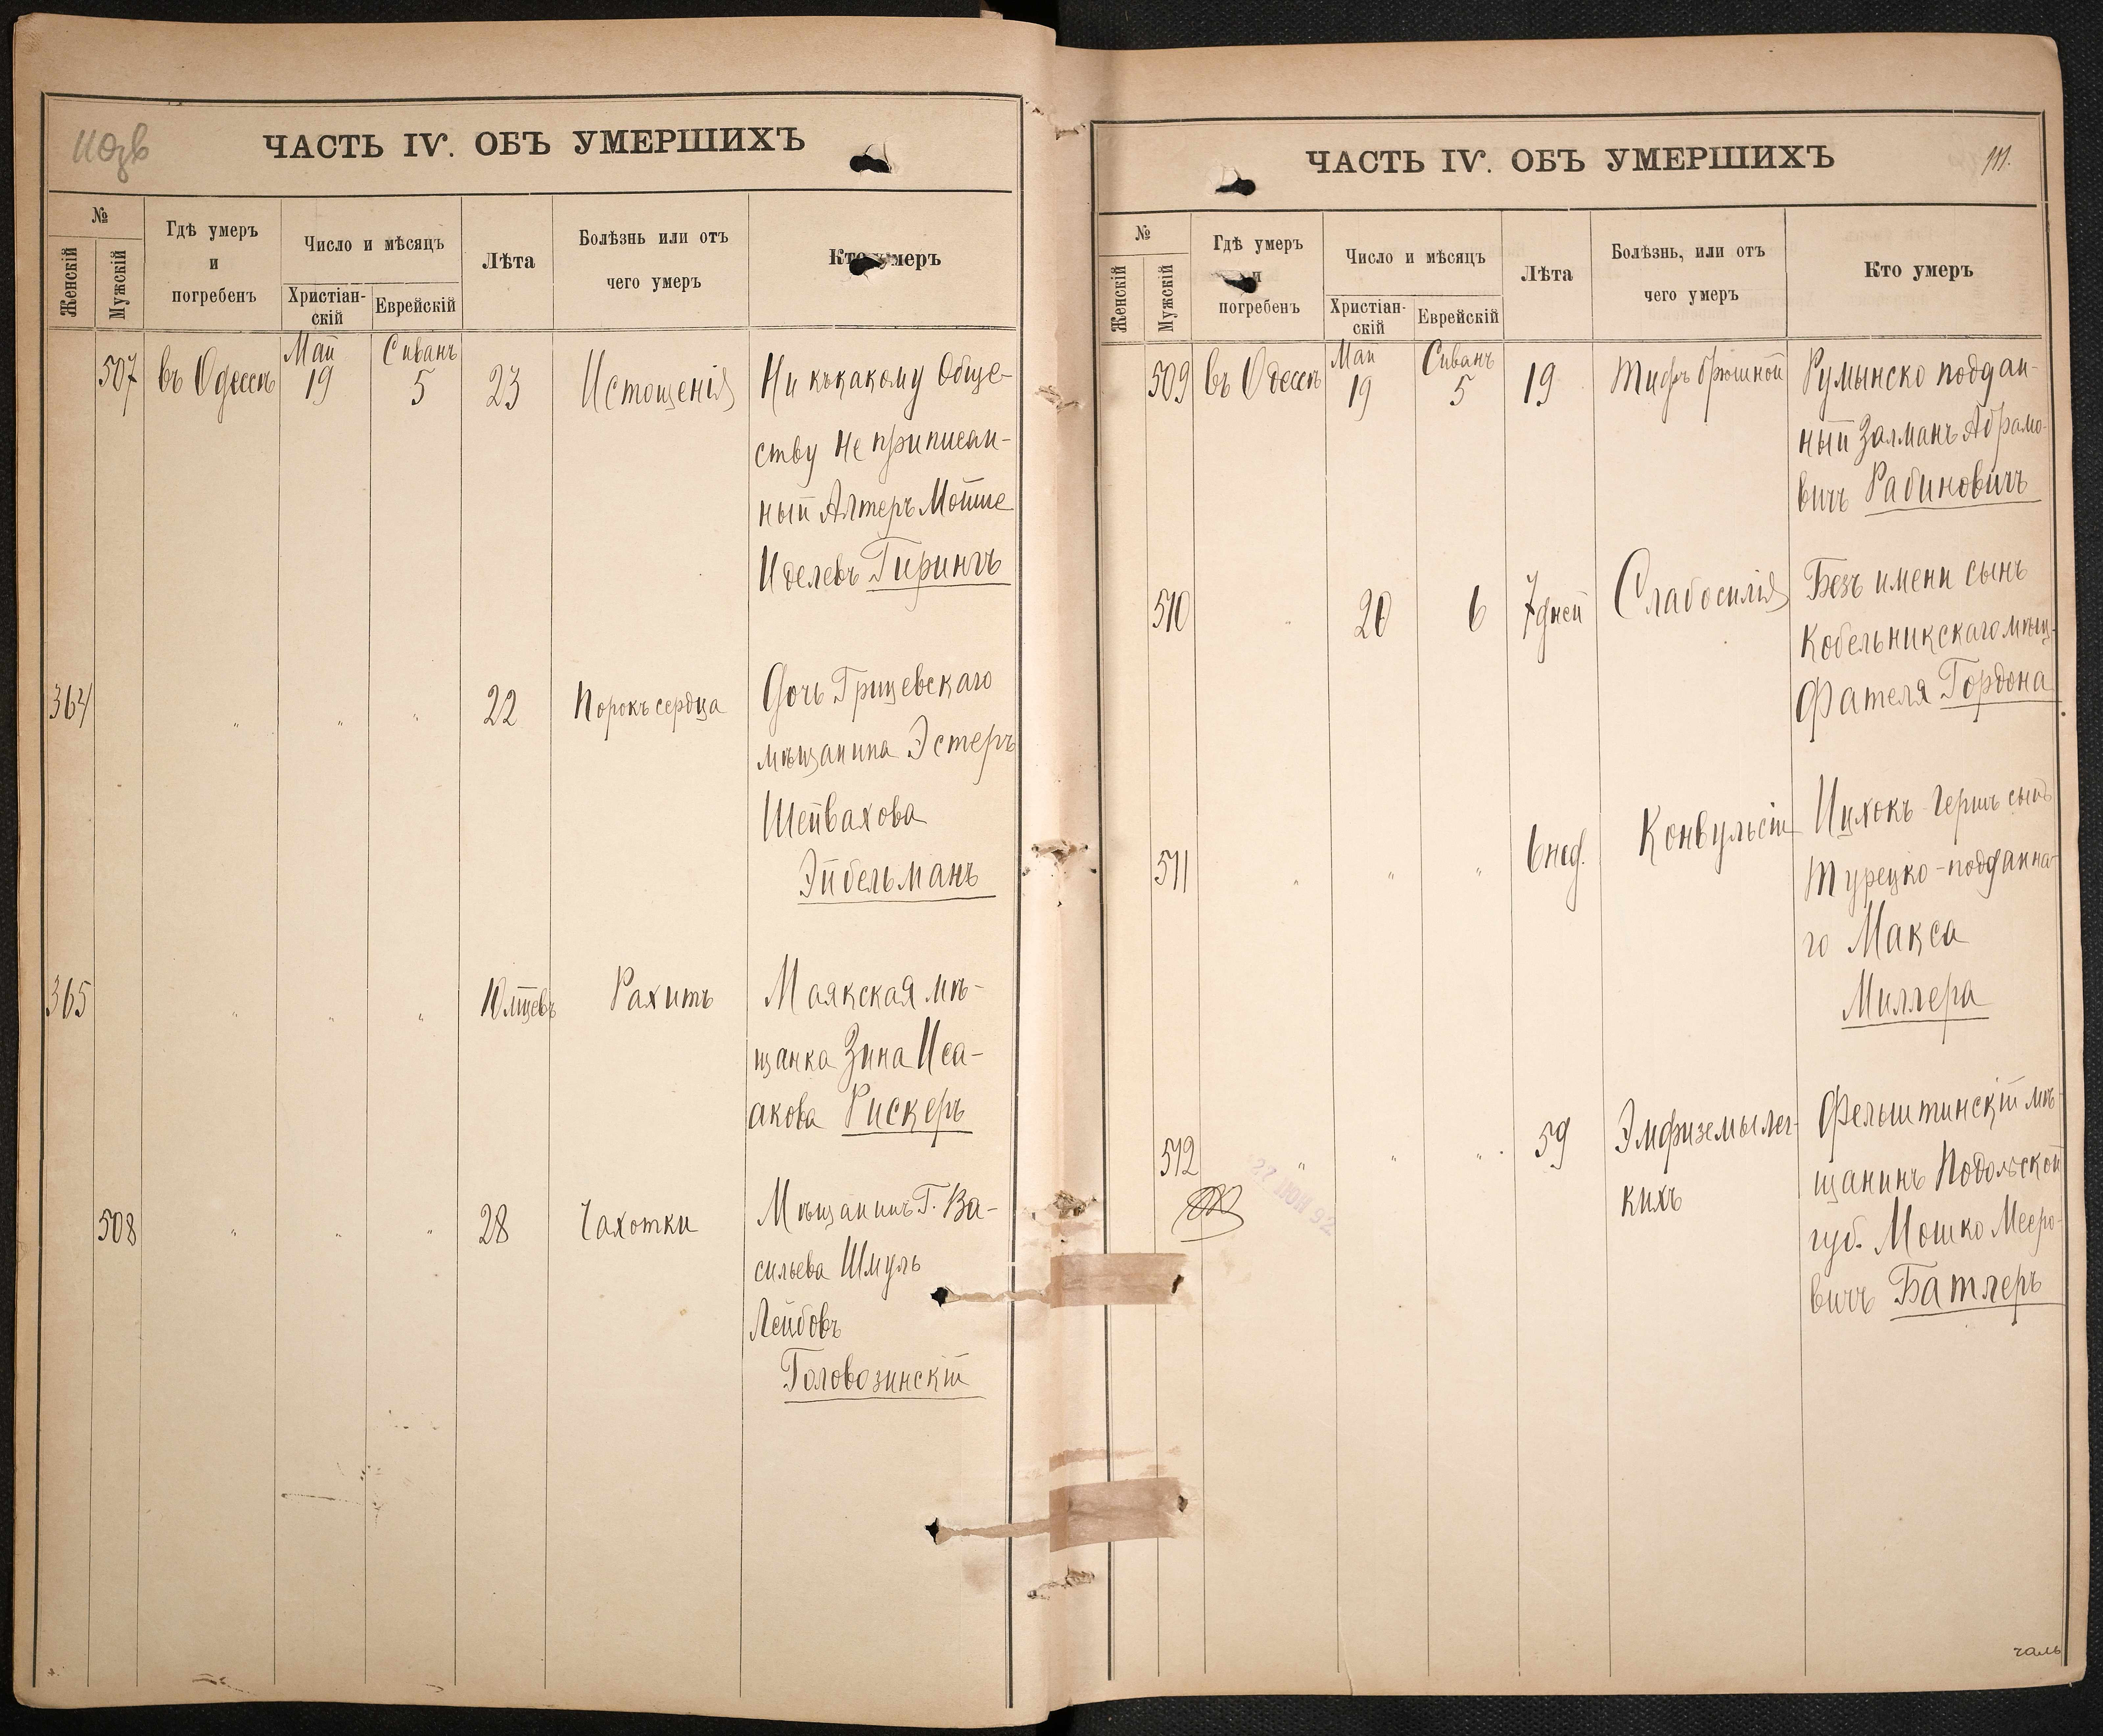 110зв
ЧАСТЬ IV. ОБЪ УМЕРШИХЪ
№
Женскій
Мужскій
Гдѣ умеръ
и
погребенъ
Число и мѣсяцъ
Христіан-
скій
Еврейскій
Лѣта
Болѣзнь или отъ
чего умеръ
Кто умеръ
Май Сиванъ
507 въ Одессѣ 19 5 23 Истощенія Ни къ какому обще-
ству не приписан-
ный Алтеръ Мойше
Иделевъ Гирингъ
364 " " " 22 Порокъ сердца Дочь Грицевскаго
мѣщанина Эстеръ
Шейвахова
Эйбельманъ
365 " " " 10 мѣсцевъ Рахитъ Маякская мѣ-
щанка Зина Иса-
акова Рискеръ
508 " " " 28 Чахотки Мѣщанинъ Г. Ва-
сильева Шмуль
Лейбовъ
Головозинскій
ЧАСТЬ IV. ОБЪ УМЕРШИХЪ
111.
№
Женскій
Мужскій
Гдѣ умеръ
и
погребенъ
Число и мѣсяцъ
Христіан-
скій
Еврейскій
Лѣта
Болѣзнь, или отъ
чего умеръ
Кто умеръ
Май Сиванъ
509 въ Одессѣ 19 5 19 Тифъ брюшной Румынско поддан-
ный Залманъ Абрамо-
вичъ Рабиновичъ
510 " 20 6 7 дней Слабосилія Безъ имени сынъ
Кобельникскаго мѣщ.
Фателя Гордона
511 " " " 6 нед. Конвульсій Ицхокъ-Гершъ сынъ
Турецко-подданна-
го Макса
Миллера
512 " " " 59 Эмфиземы лег- Фельштинскій мѣ-
кихъ щанинъ Подольской
губ. Мошко Мееро-
вичъ Батлеръ
22 ІЮН 92